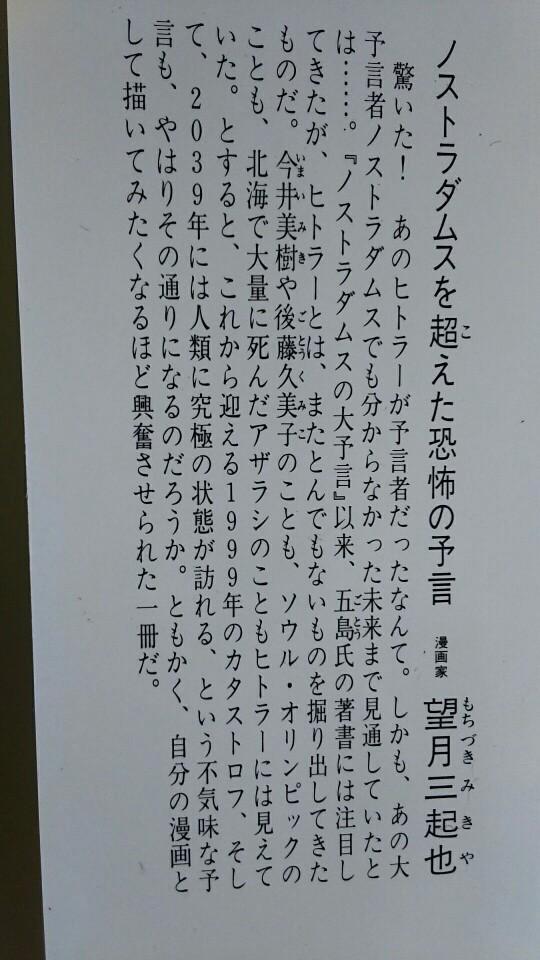 ノストラダムスを超えた恐怖の予言 漫画家 望月三起也
驚いた！　あのヒトラーが予言者だったなんて。しかも、あの大
予言者ノストラダムスでも分からなかった未来まで見通していたと
は……。『ノストラダムスの大予言』以来、五島氏の著書には注目し
てきたが、ヒトラーとは、またとんでもないものを掘り出してきた
ものだ。今井美樹や後藤久美子のことも、ソウル・オリンピックの
ことも、北海で大量に死んだアザラシのこともヒトラーには見えて
いた。とすると、これから迎える1999年のカタストロフ、そし
て、2039年には人類に究極の状態が訪れる、という不気味な予
言も、やはりその通りになるのだろうか。ともかく、自分の漫画と
して描いてみたくなるほど興奮させられた一冊だ。